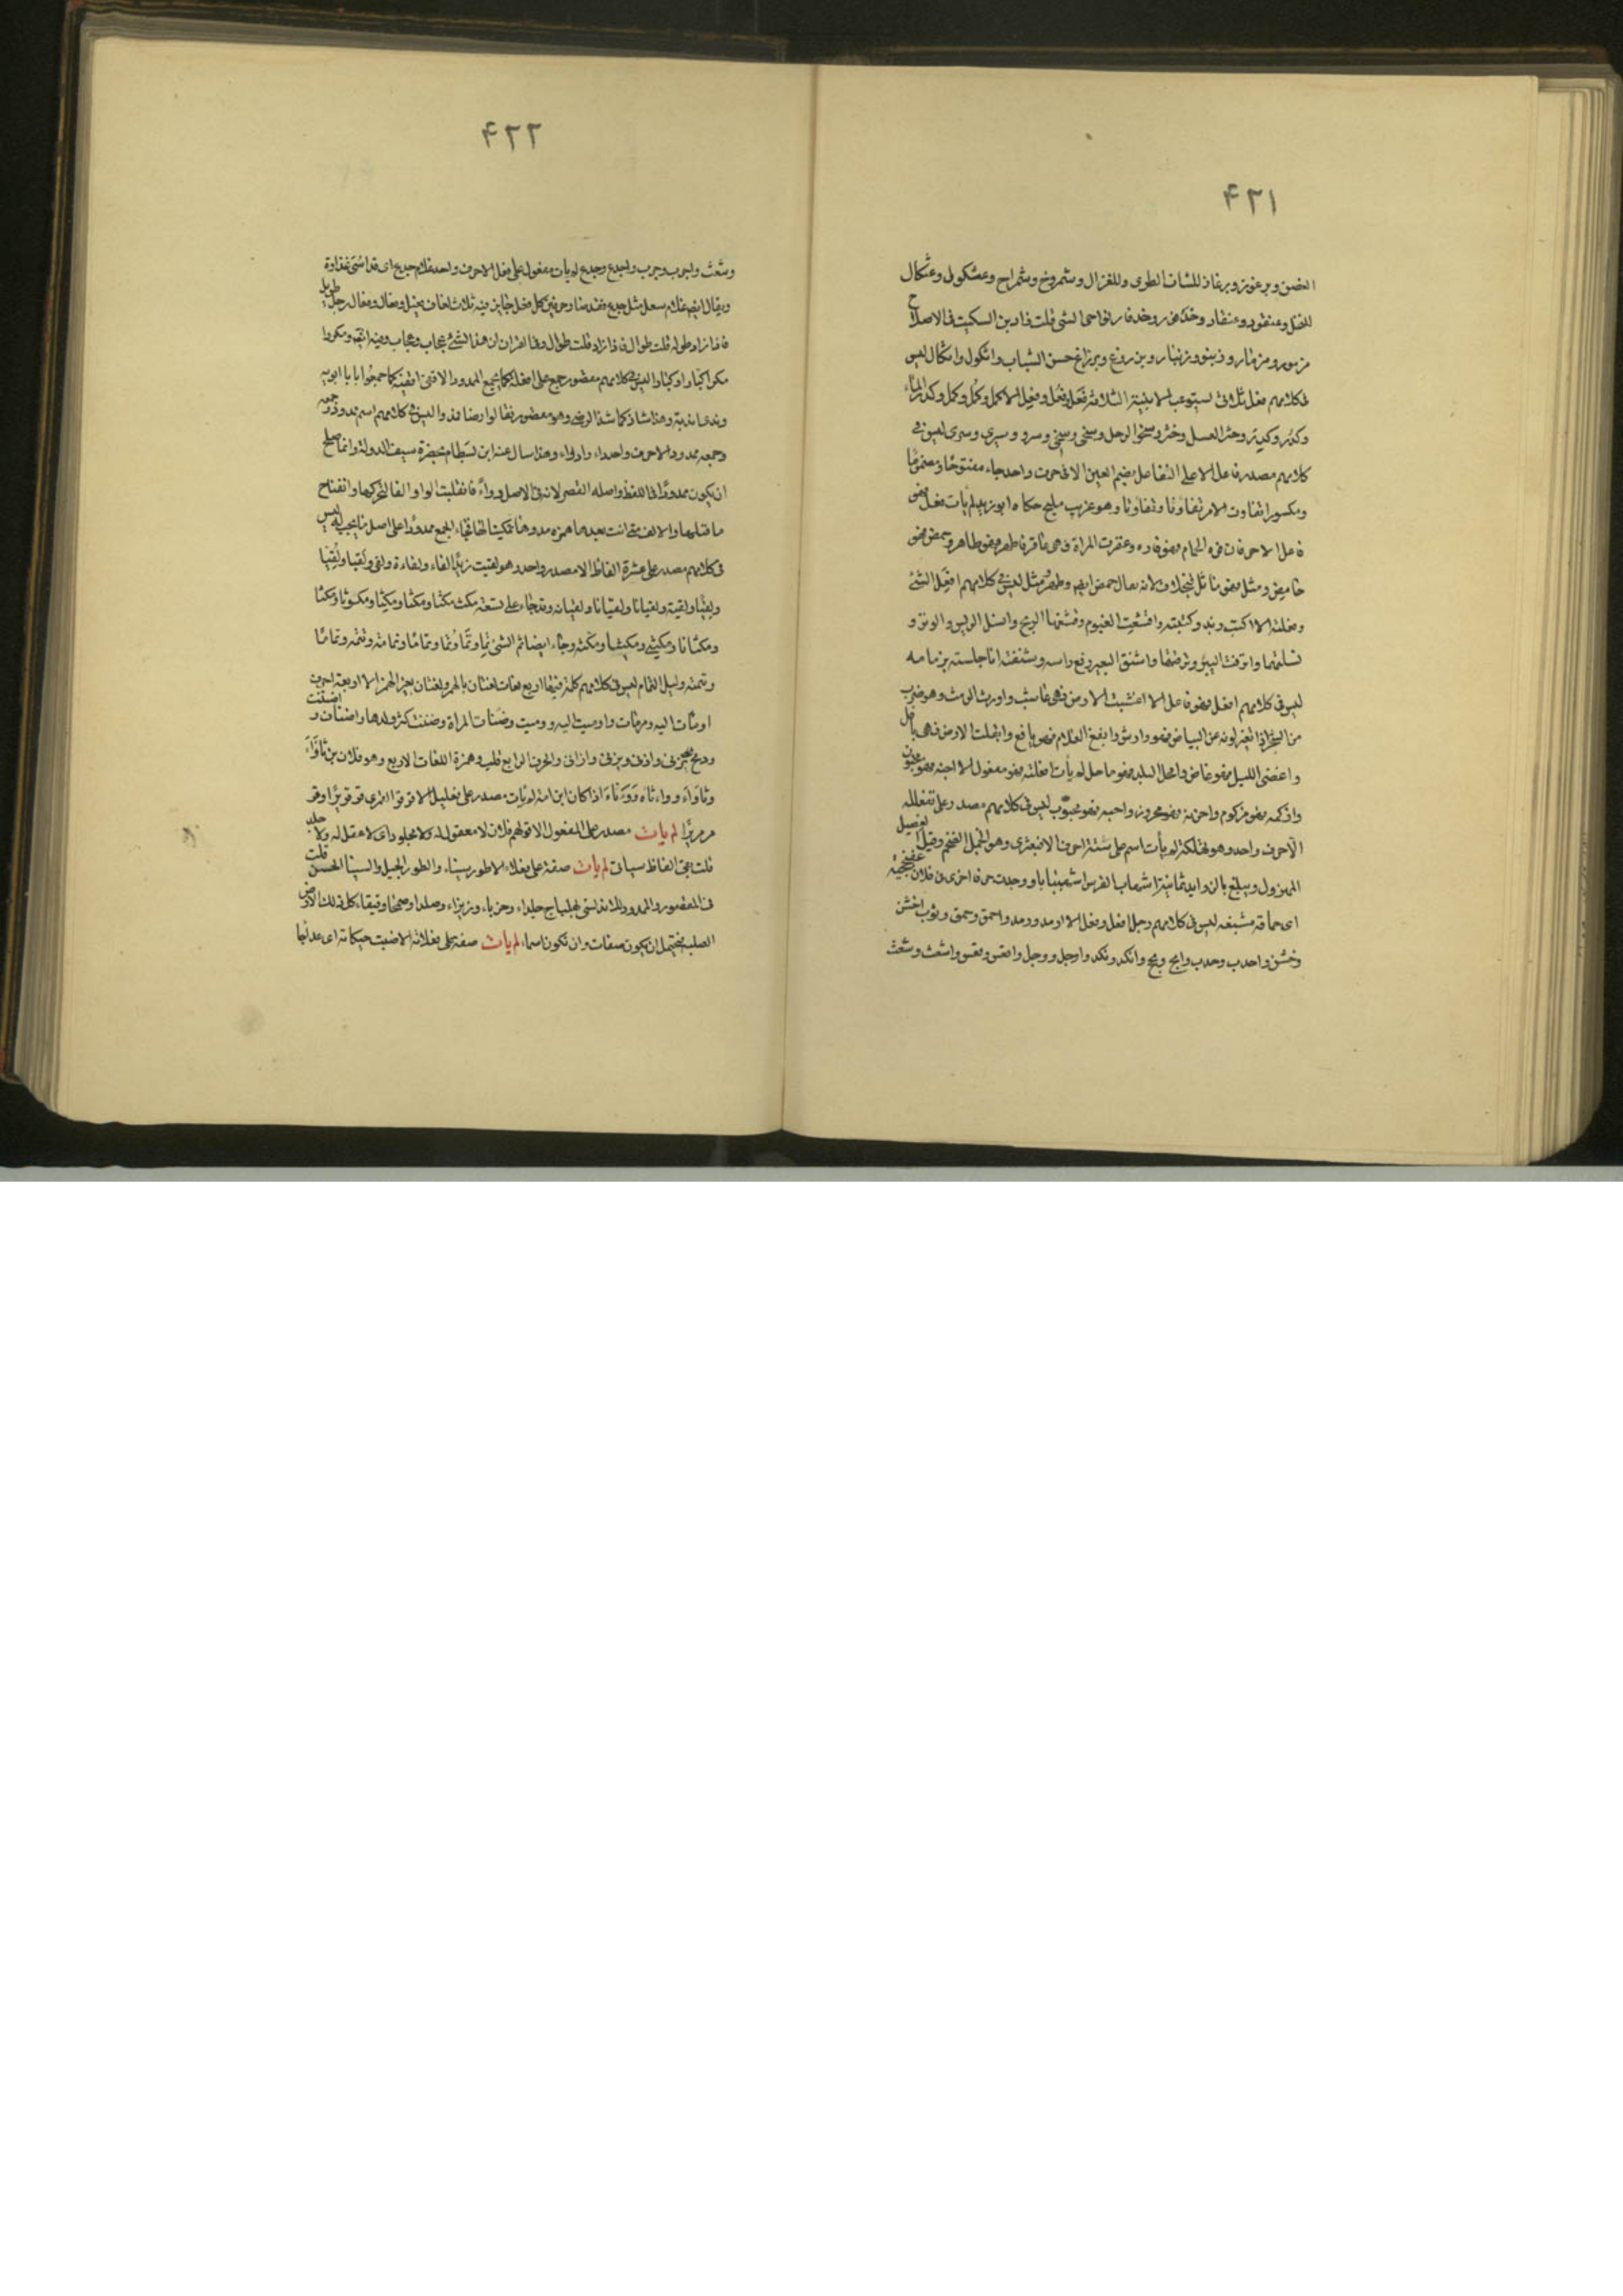 ۴۲۱
الغصن وبرغوز وبرغاز للشاب الطرى وللغزال وشمروخ وشمراخ وعثكول وعثكال
للنخل وعنقود وعنقاد وخذفور وخذفار لنواحى الشى قلت زاد بن السكيت فى الاصلاح
مزمور ومزمار وزنبور وزنبار وبرزوغ وبرزاغ حسن الشباب واثكول واثكال ليس
فى كلامهم فعل ثلاثى يستوعب الابنية الثلاثة فعَل وفعُل وفعِل الا كمل وكمُل وكمِل وكدر الماء
وكدُر وكدِر وخثر العسل وخثر وسخو الرجل وسخى وسخى وسرو وسرى وسرى ليس فى
كلامهم مصدر فاعل الا على التفاعل بضم العين الا فى حرف واحد جاء مفتوحا ومضموما
ومكسورا تفاوت الامر تفاوتا وتفاوتا وهو غريب مليح حكاه ابو زيد لم يأت فعل فهو
فاعل الا حرفان فره الحمام فهو فاره وعقرت المراة فهى عاقر فاما طهر فهو طاهر وحمض فهو
حامض ومثل فهو ماثل فبخلاف لانه يقال حمض ايضا وطهر ومثل ليس فى كلامهم افعل الشئ
وفعلته الا اكب زيد وكببته واقشعت الغيوم وقشعتها الريح وانسل الريش والوبر و
نسلتهما وانزفت البئر ونزفتها واشنق البعير رفع راسه وشنقته انا حبسته بزمامه
ليس فى كلامهم افعل فهو فاعل الا اعشبت الارض فهى عاشب واورس الرمث وهو ضرب
من الشجر اذا تغير لونه عن البياض فهو وارس وايفع الغلام فهو يافع وابقلت الارض فهى باقل
واغضى الليل فهو غاض وامحل البلد فهو ماحل لم يأت افعلته فهو مفعول الا اجنه فهو مجنون
وازكمه فهو مزكوم واحزنه فهو محزون واحبه فهو محبوب ليس فى كلامهم مصدر على تفعللة
الا حرف واحد وهو تهلكة لم يأت اسم على ستة احرف الا قبعثرى وهو الجمل الضخم وقيل الفصيل
المهزول ويبلغ بالزوايد ثمانية اشهاب الفرس اشهيبابا ووجدت حرفا اخرى فى فلان عفنججية
اى حماقة مشبعة ليس فى كلامهم رجل افعل وفعل الا ارمد ورمد واحمق وحمق وثوب اخشن
وخشن واحدب وحدب وابح وبح وانكد ونكد واوجل ووجل واقعس وقعس واشعث وشعث
۴۲۲
وشعث واجرب وجرب واجدع وجدع لم يأت مفعول على فعل الا حرف واحد غلام جدع اى قد اسئ غذاوه
ويقال ايضا غلام سغل مثل جدع فقد صار حرفين كل فعل جايز فيه ثلاث لغات فعيل وفعال وفعال رجل طويل
فاذا زاد طوله قلت طوال فاذا زاد قلت طوال وفى القران ان هذا الشئ عجاب وعجاب وفيه ايضا ومكروا
مكرا كبارا وكبارا ليس فى كلامهم مقصور جمع على افعلة كما يجمع الممدود الا قفى اقفية كما جمعوا بابا ابوبه
وندى اندية وهذا شاذ كما شذ الرضى وهو مقصور فقالوا رضا فمدوا ليس فى كلامهم اسم ممدود وجمعه
وجمعه ممدود الا حرف واحد داء وادواء وهذا سال عنه ابن بسطام بحضرة سيف الدولة وانما صلح
ان يكون ممدودا فى اللفظ واصله القصر لانه فى الاصل دواء فانقلبت الواو الفا لتحركها وانفتاح
ما قبلها والالف متى اتت بعدها همزه مدوها تمكينا لها فجاء الجمع ممدودا على اصل ما يجب له ليس
فى كلامهم مصدر على عشرة الفاظ الا مصدر واحد وهو لقيت زيدا لقاء ولقاءة ولقى ولقيا ولقيا
ولقيا ولقية ولقيانا ولقيانا ولقيانة وقد جاء على تسعة مكث مكثا ومكثا ومكيثا ومكوثا ومكثا
ومكثانا ومكيثى ومكيثا ومكثة وجاء ايضا تم الشئ تما وتما وتما وتماما وتمامة وتتمة وتماما
وتتمة وليل التمام ليس فى كلامهم كلمة فيها اربع لغات لغتان بالهمز ولغتان بغير الهمز الا اربعة احرف
اومأت اليه ومات واوميت اليه ووميت وضنات المراة وضنت كثر ولدها واضنات واضنت
ورمح يزنى وازنى ويزانى وازانى والحرف الرابع قلب همزة اللغات الاربع وهو فلان بن ثأداء
وثأداء ودأثاء ودأثاء اذا كان ابن امة لم يأت مصدر على فعليل الا قرقر القمرى قرقريرا ومر
مرمريرا لم يات مصدر على المفعول الا قولهم فلان لا معقول له ولا مجلود اى لا عقل له ولا جلد
قلت بقى الفاظ ستاتى لم يات صفة على فعلاء الا طور سيناء والطور الجبل والسينا الحسن قلت
فى المقصور والممدود للاندلسى جلباج جلداء وحزباء وزيزاء وصلدا وصمحا وقيقاء كل ذلك الارض
الصلبة يحتمل ان يكون صفات وان تكون اسماء لم يات صفة على فعلانة الا ضبت حيكانة اى عدائها